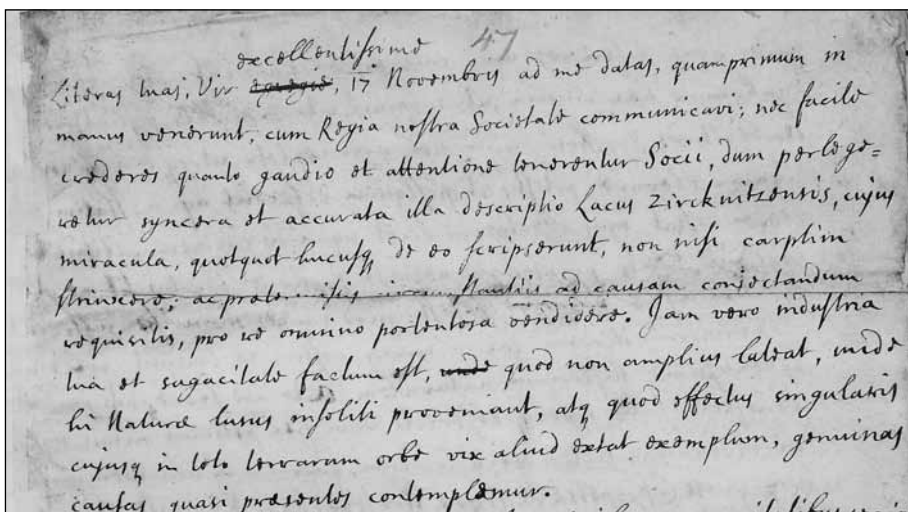 47
excellentissime
Literas tuas, Vir egregie, 17 Novembris ad me datas, quamprimum in
manus venerunt, cum Regia nostra Societate communicavi; nec facile
crederes quanto gaudio et attentione tenerentur Socii, dum perlege=
retur syncera et accurata illa descriptio Lacus Zircknitzensis, cujus
miracula, quotquot hucusq de eo scripserunt, non nisi carptim
strinxere; ac praetermissis circumstantiis ad causam conjectandum
requisitis, pro re omnino portentosa vendidere. Jam vero industria
tua et sagacitate factum est, unde quod non amplius lateat, unde
hi Naturæ lusus insoliti proveniant, atq quod effectus singularis
cujusq in toto terrarum orbe vix aliud extat exemplum, genuinas
causas quasi præsentes contemplemur.